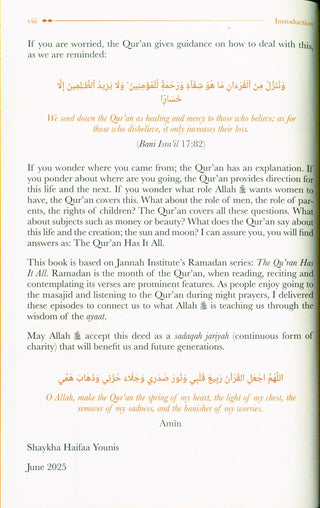 viii
Introduction
If you are worried, the Qur'an gives guidance on how to deal with this,
as we are reminded:
وَنُنَزِّلُ مِنَ ٱلْقُرْءَانِ مَا هُوَ شِفَآءٌ وَرَحْمَةٌ لِّلْمُؤْمِنِينَ ۙ وَلَا يَزِيدُ ٱلظَّـٰلِمِينَ إِلَّا
خَسَارًا
We send down the Qur'an as healing and mercy to those who believe; as for
those who disbelieve, it only increases their loss.
(Bani Isra'il 17:82)
If you wonder where you came from; the Qur'an has an explanation. If
you ponder about where are you going, the Qur'an provides direction for
this life and the next. If you wonder what role Allah ﷻ wants women to
have, the Qur'an covers this. What about the role of men, the role of par-
ents, the rights of children? The Qur'an covers all these questions. What
about subjects such as money or beauty? What does the Qur'an say about
this life and the creation; the sun and moon? I can assure you, you will find
answers as: The Qur'an Has It All.
This book is based on Jannah Institute's Ramadan series: The Qu'ran Has
It All. Ramadan is the month of the Qur'an, when reading, reciting and
contemplating its verses are prominent features. As people enjoy going to
the masjid and listening to the Qur'an during night prayers, I delivered
these episodes to connect us to what Allah ﷻ is teaching us through the
wisdom of the ayaat.
May Allah ﷻ accept this deed as a sadaqah jariyah (continuous form of
charity) that will benefit us and future generations.
اللَّهُمَّ اجْعَلِ القُرْآنَ رَبِيعَ قَلْبِي وَنُورَ صَدْرِي وَجَلَاءَ حُزْنِي وَذَهَابَ هَمِّي
O Allah, make the Qur'an the spring of my heart, the light of my chest, the
remover of my sadness, and the banisher of my worries.
Amin
Shaykha Haifaa Younis
June 2025